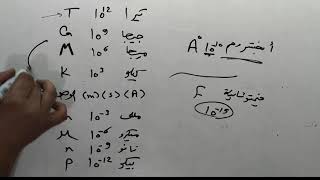 T 10¹² تيرا
G 10⁹ جيجا
M 10⁶ ميجا
K 10³ كيلو
(m) (s) (A)
m 10⁻³ ملى
μ 10⁻⁶ ميكرو
n 10⁻⁹ نانو
P 10⁻¹² بيكو
A° 10⁻¹⁰ انجستروم
F فيمتو ثانية
10⁻¹⁵